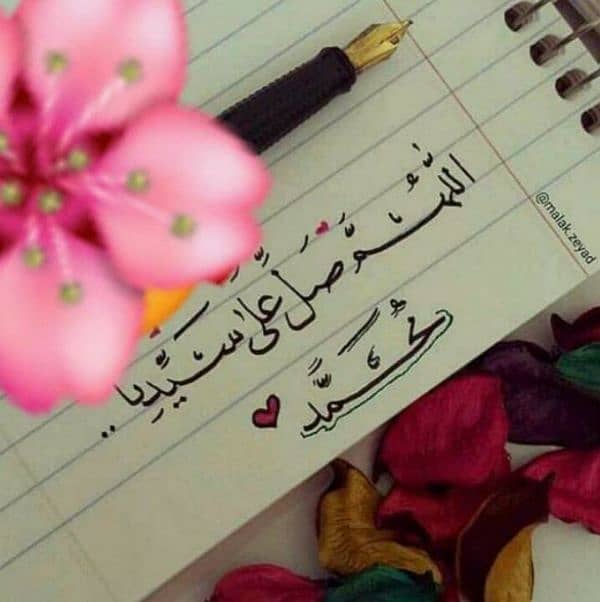 اللَّهُمَّ صَلِّ عَلَىٰ سَيِّدِنَا ..
مُحَمَّد
@malak.zeyad